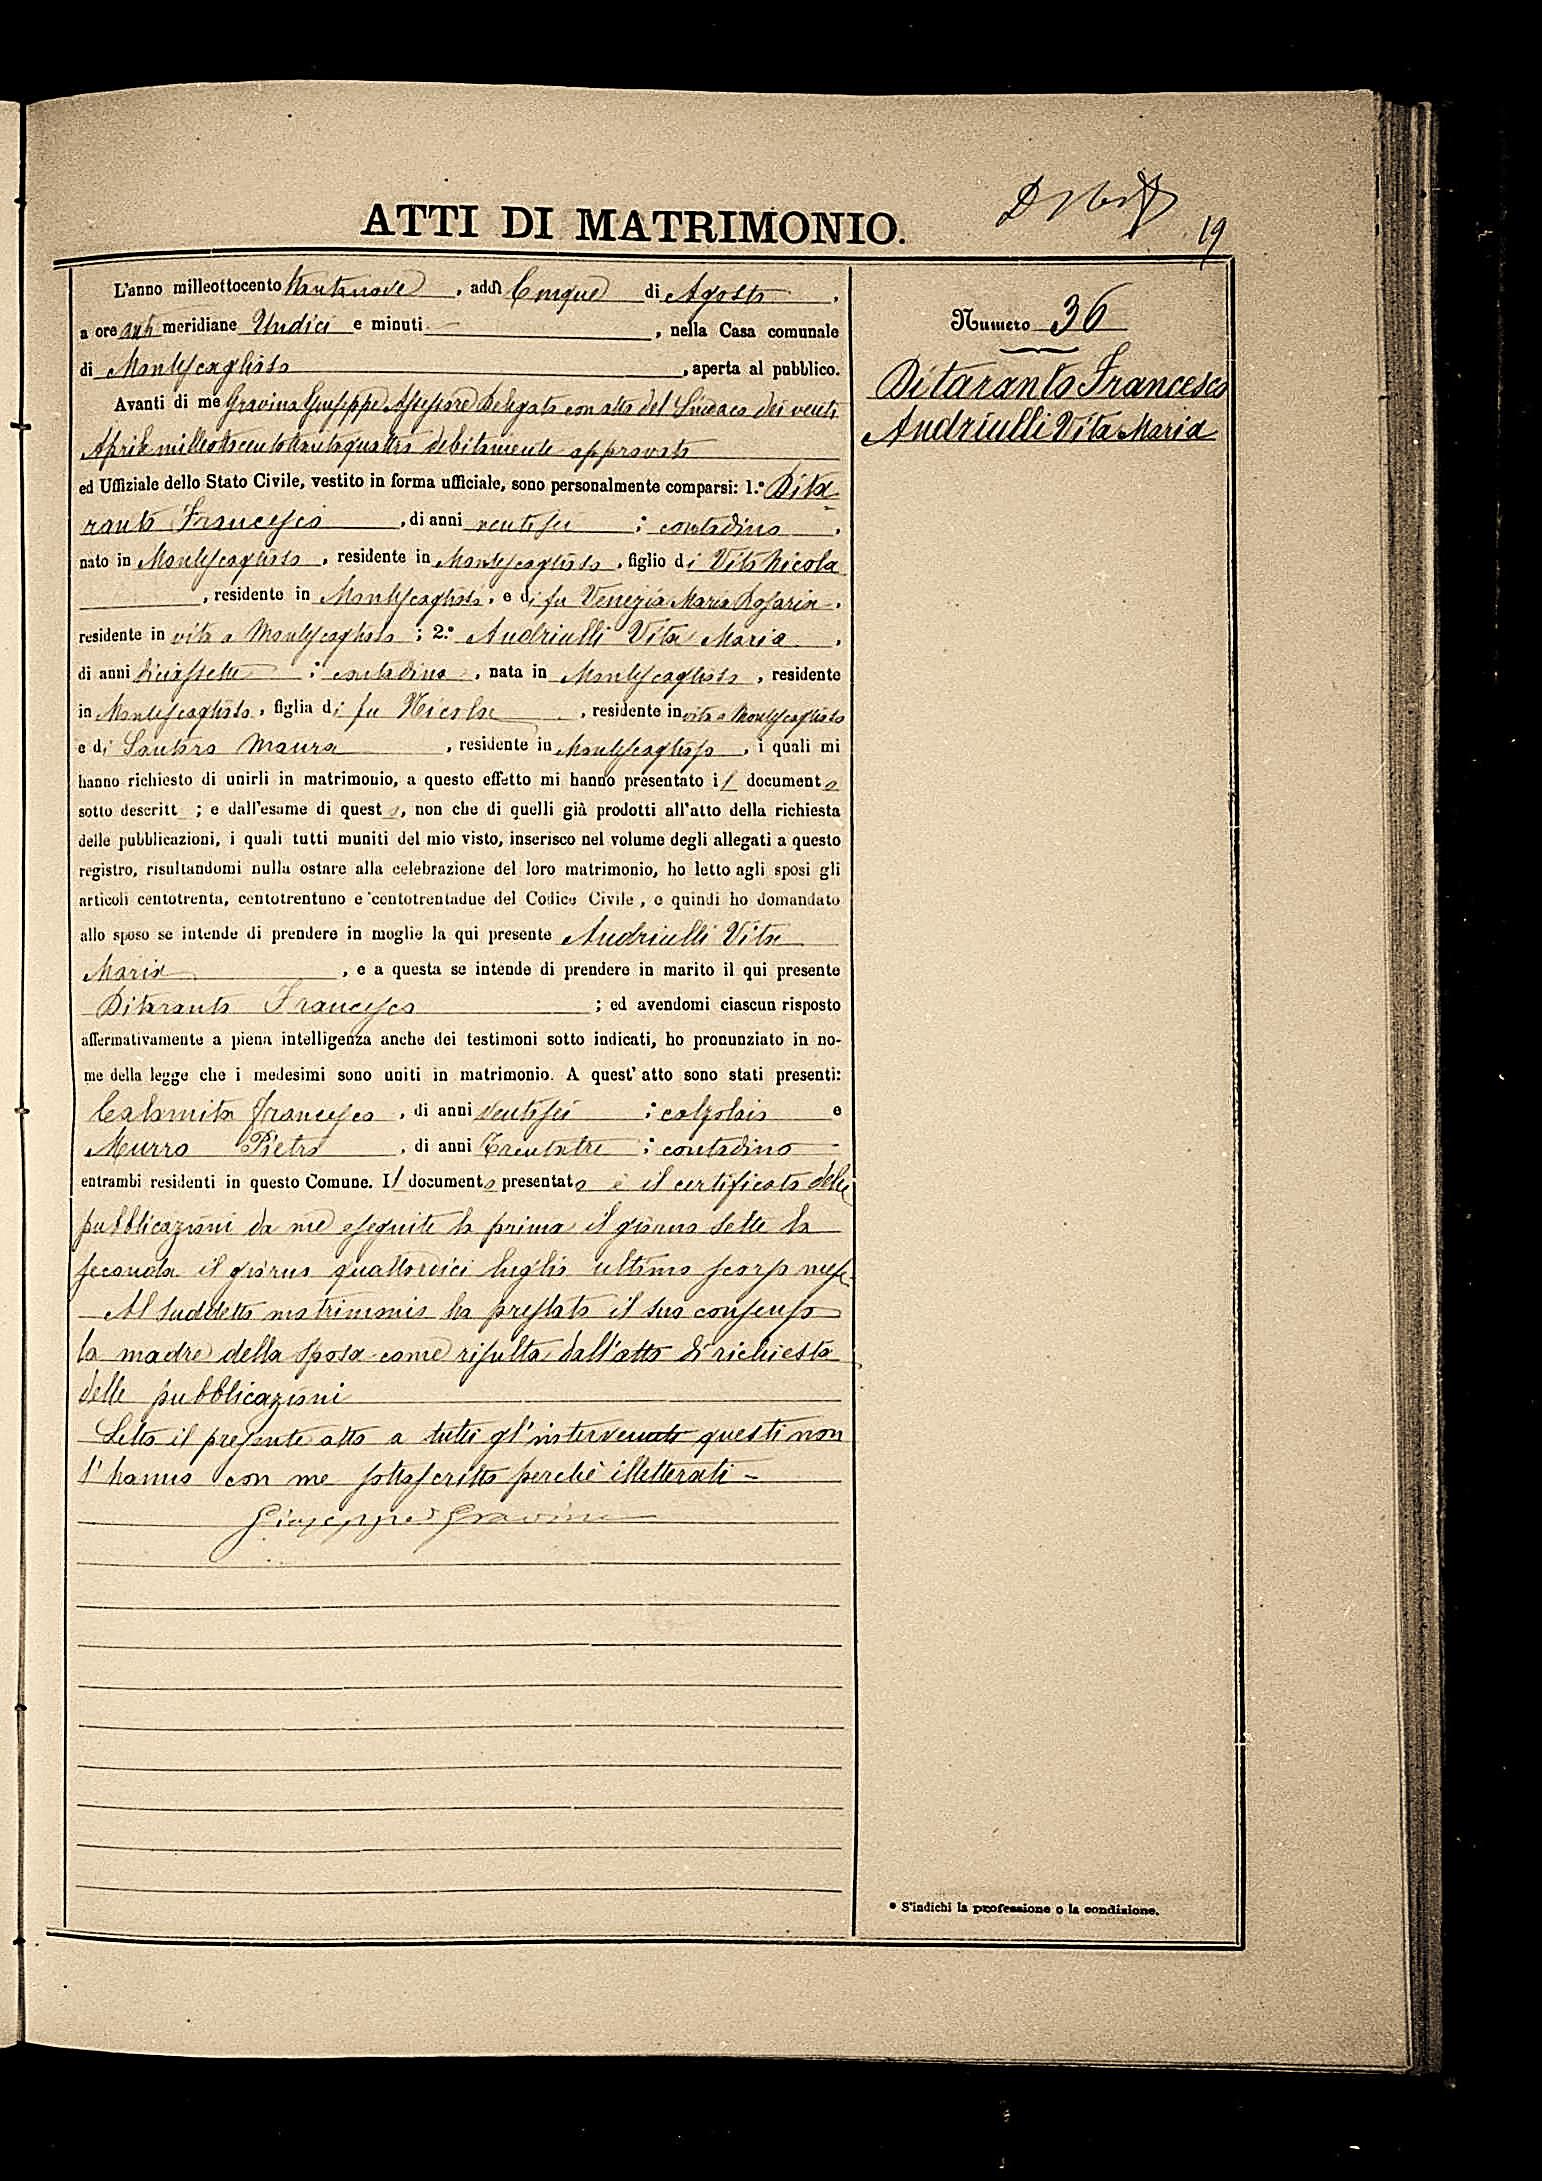 ATTI DI MATRIMONIO.
19
L'anno milleottocento ottantanove, addì Cinque di Agosto,
a ore anti meridiane Undici e minuti , nella Casa comunale
di Montescaglioso, aperta al pubblico.
Avanti di me Gravina Giuseppe Assessore Delegato con atto del Sindaco dei venti
Aprile milleottocentottantaquattro debitamente approvato
ed Uffiziale dello Stato Civile, vestito in forma ufficiale, sono personalmente comparsi: 1.° Dita
ranto Francesco, di anni ventisei; contadino,
nato in Montescaglioso, residente in Montescaglioso, figlio di Vito Nicola
, residente in Montescaglioso, e di fu Venezia Maria Rosaria,
residente in vita a Montescaglioso; 2.° Andriulli Vita Maria,
di anni diciassette; contadina, nata in Montescaglioso, residente
in Montescaglioso, figlia di fu Nicola, residente in vita a Montescaglioso
e di Santoro Maura, residente in Montescaglioso, i quali mi
hanno richiesto di unirli in matrimonio, a questo effetto mi hanno presentato il documento
sotto descritt ; e dall'esame di questo, non che di quelli già prodotti all'atto della richiesta
delle pubblicazioni, i quali tutti muniti del mio visto, inserisco nel volume degli allegati a questo
registro, risultandomi nulla ostare alla celebrazione del loro matrimonio, ho letto agli sposi gli
articoli centotrenta, centotrentuno e centotrentadue del Codice Civile, e quindi ho domandato
allo sposo se intende di prendere in moglie la qui presente Andriulli Vita
Maria, e a questa se intende di prendere in marito il qui presente
Ditaranto Francesco; ed avendomi ciascun risposto
affermativamente a piena intelligenza anche dei testimoni sotto indicati, ho pronunziato in no-
me della legge che i medesimi sono uniti in matrimonio. A quest' atto sono stati presenti:
Calamita Francesco, di anni ventisei; calzolaio e
Murro Pietro, di anni Trentatre; contadino
entrambi residenti in questo Comune. Il documento presentato è il certificato delle
pubblicazioni da me eseguite la prima il giorno sette la
seconda il giorno quattordici luglio ultimo scorso mese.
Al suddetto matrimonio ha prestato il suo consenso
la madre della sposa come risulta dall'atto di richiesta
delle pubblicazioni
Letto il presente atto a tutti gl'intervenuti questi non
l'hanno con me sottoscritto perchè illetterati -
Giuseppe Gravina
Numero 36
Ditaranto Francesco
Andriulli Vita Maria
• S'indichi la professione o la condizione.